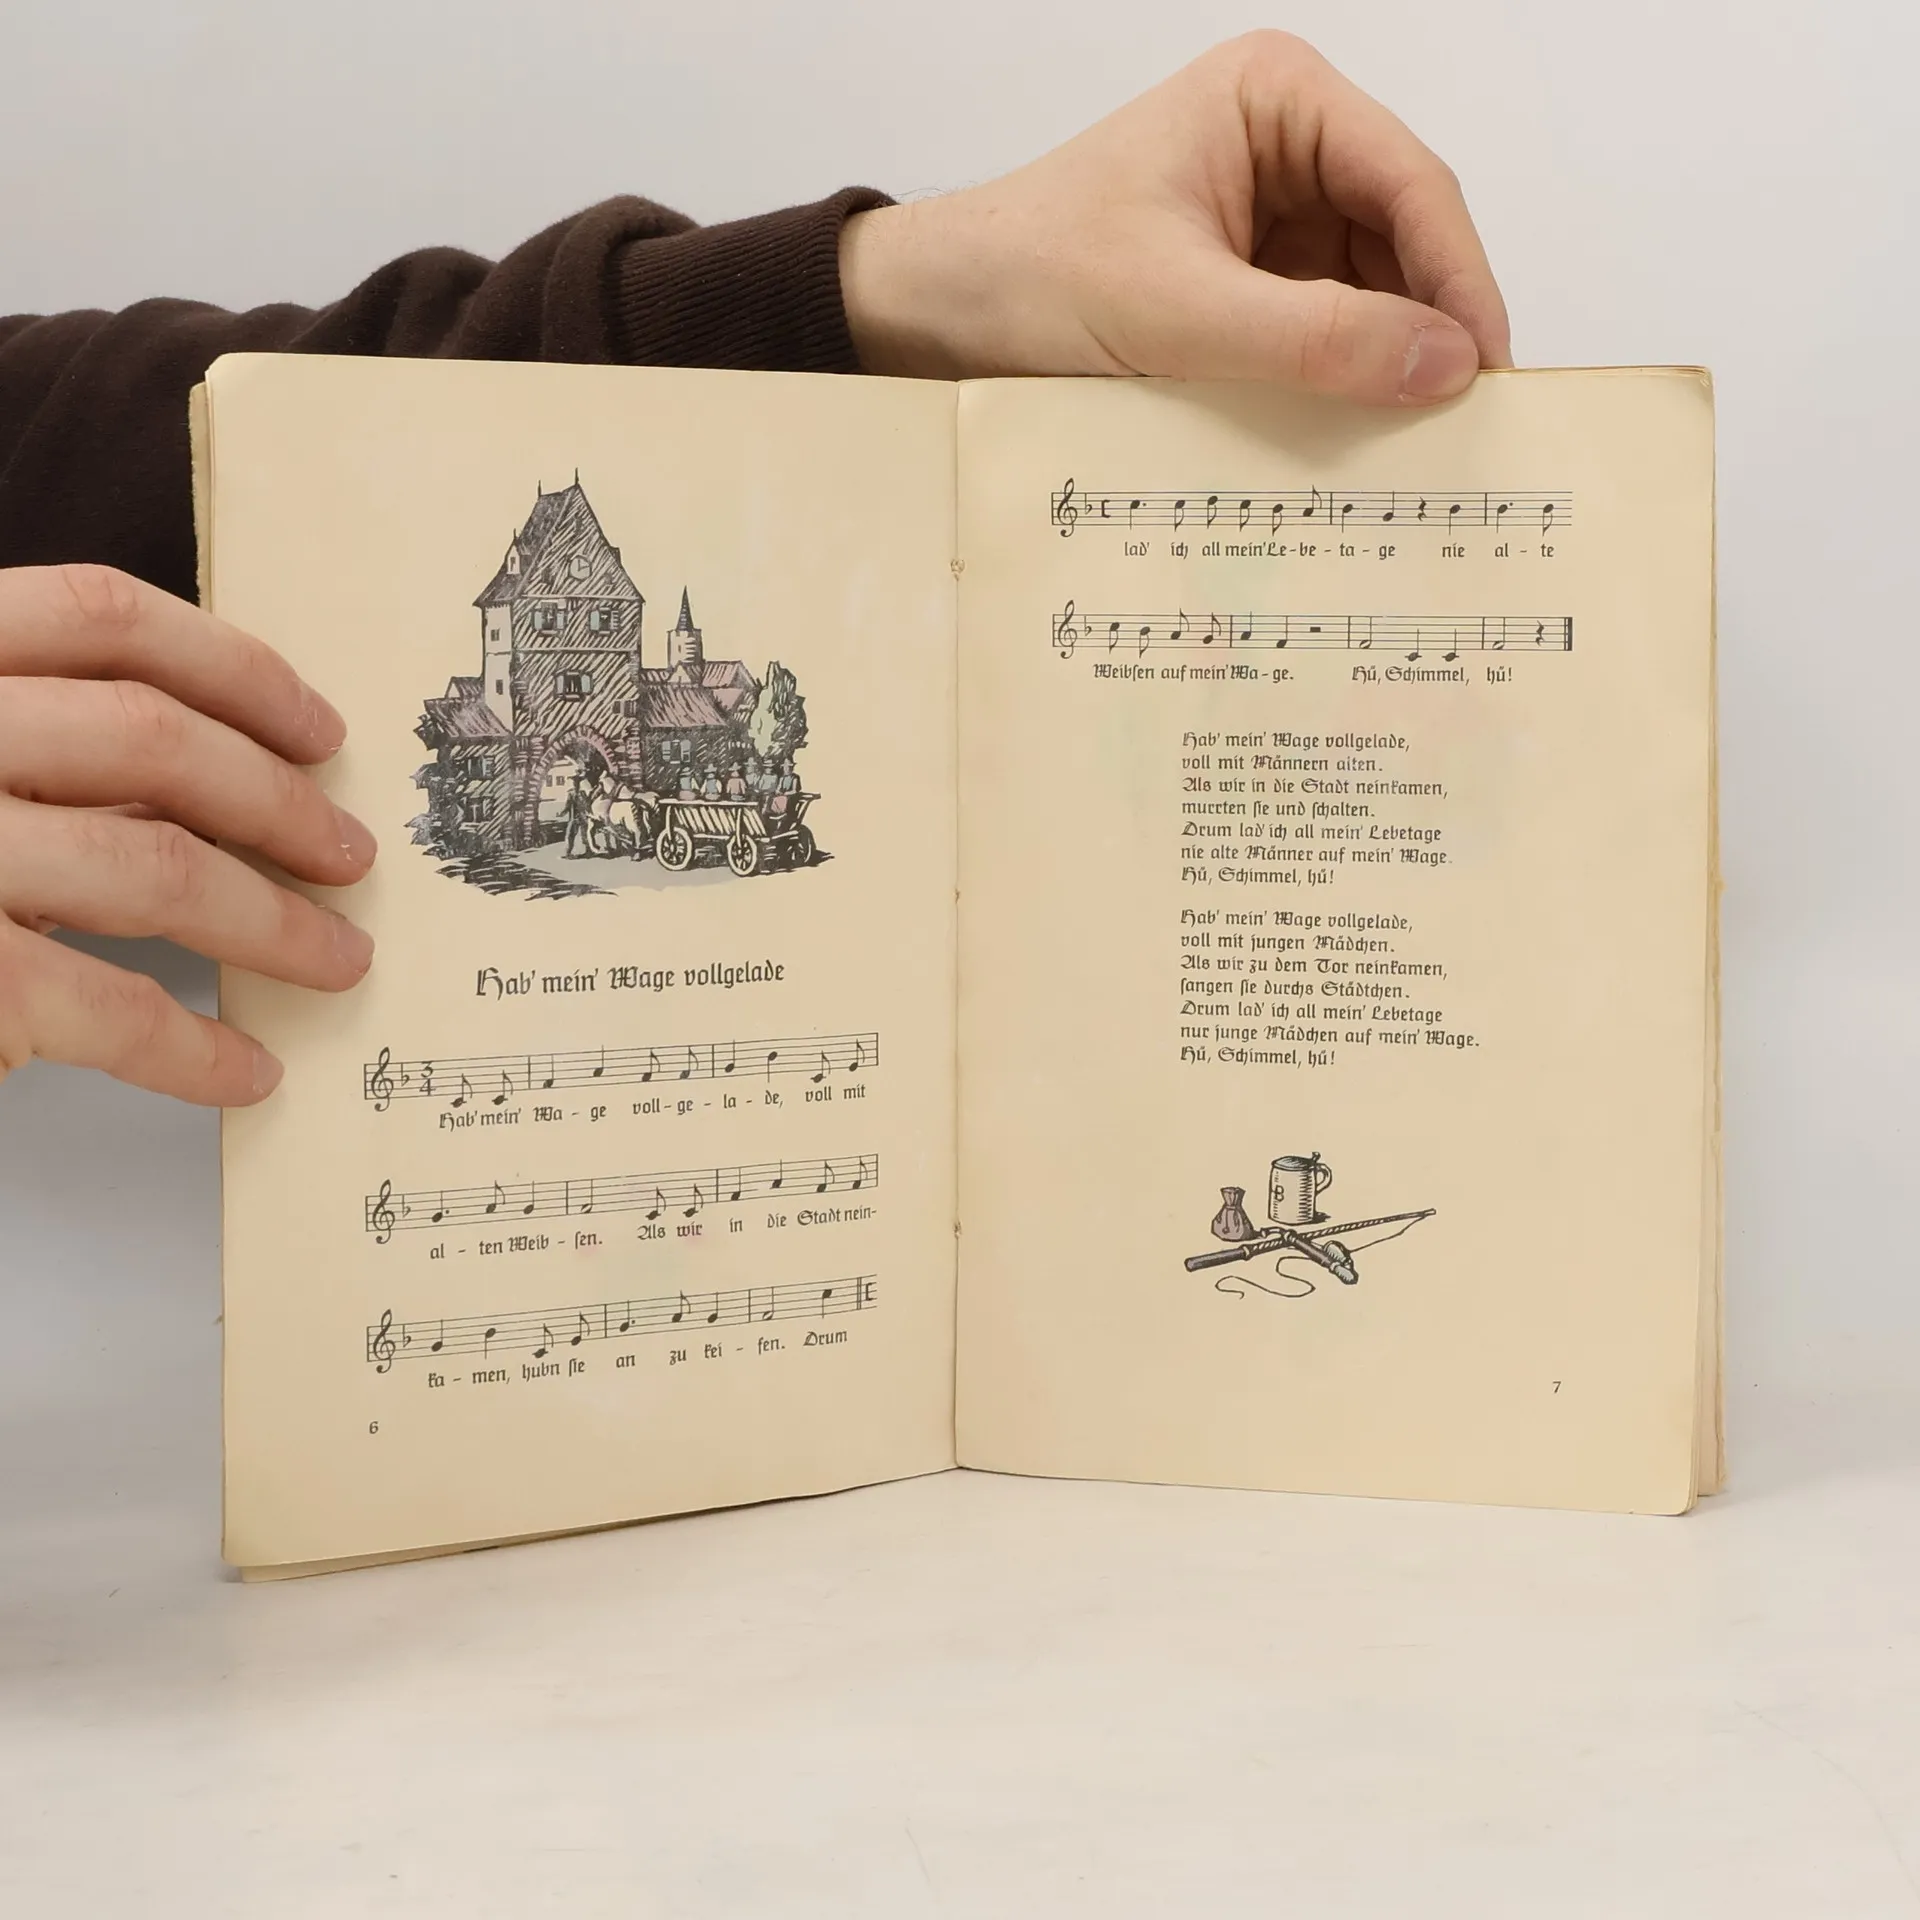 Hab' mein' Wage vollgelade
3
4
Hab' mein' Wa - ge voll - ge - la - de, voll mit
al - ten Weib - sen. Als wir in die Stadt nein-
ka - men, hubn sie an zu kei - fen. Drum
6
lad' ich all mein' Le - be - ta - ge nie al - te
Weibsen auf mein' Wa - ge. Hü, Schimmel, hü!
Hab' mein' Wage vollgelade,
voll mit Männern alten.
Als wir in die Stadt neinkamen,
murrten sie und schalten.
Drum lad' ich all mein' Lebetage
nie alte Männer auf mein' Wage.
Hü, Schimmel, hü!
Hab' mein' Wage vollgelade,
voll mit jungen Mädchen.
Als wir zu dem Tor neinkamen,
sangen sie durchs Städtchen.
Drum lad' ich all mein' Lebetage
nur junge Mädchen auf mein' Wage.
Hü, Schimmel, hü!
B
7